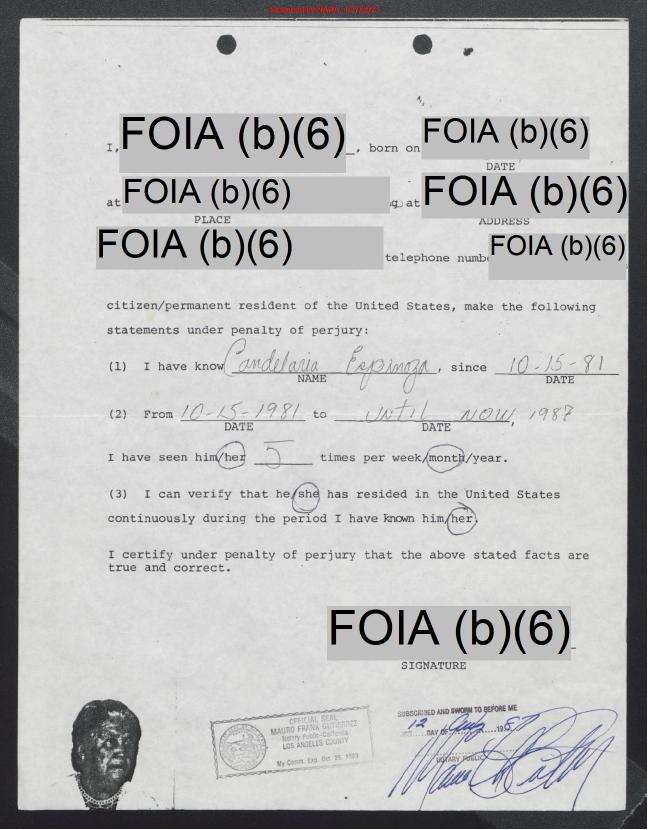 I, FOIA (b)(6) , born on FOIA (b)(6)
DATE
at FOIA (b)(6) g at FOIA (b)(6)
PLACE ADDRESS
FOIA (b)(6) telephone numbe FOIA (b)(6)
citizen/permanent resident of the United States, make the following
statements under penalty of perjury:
(1) I have know Candelaria Espinoza, since 10-15-81
NAME DATE
(2) From 10-15-1981 to UNTIL NOW, 1987
DATE DATE
I have seen him/her 5 times per week/month/year.
(3) I can verify that he/she has resided in the United States
continuously during the period I have known him/her.
I certify under penalty of perjury that the above stated facts are
true and correct.
FOIA (b)(6)
SIGNATURE
OFFICIAL SEAL
MAURO FRANK GUTIERREZ
Notary Public-California
LOS ANGELES COUNTY
My Comm. Exp. Oct 25,
SUBSCRIBED AND SWORN TO BEFORE ME
12 DAY OF Aug 1987
NOTARY PUBLIC